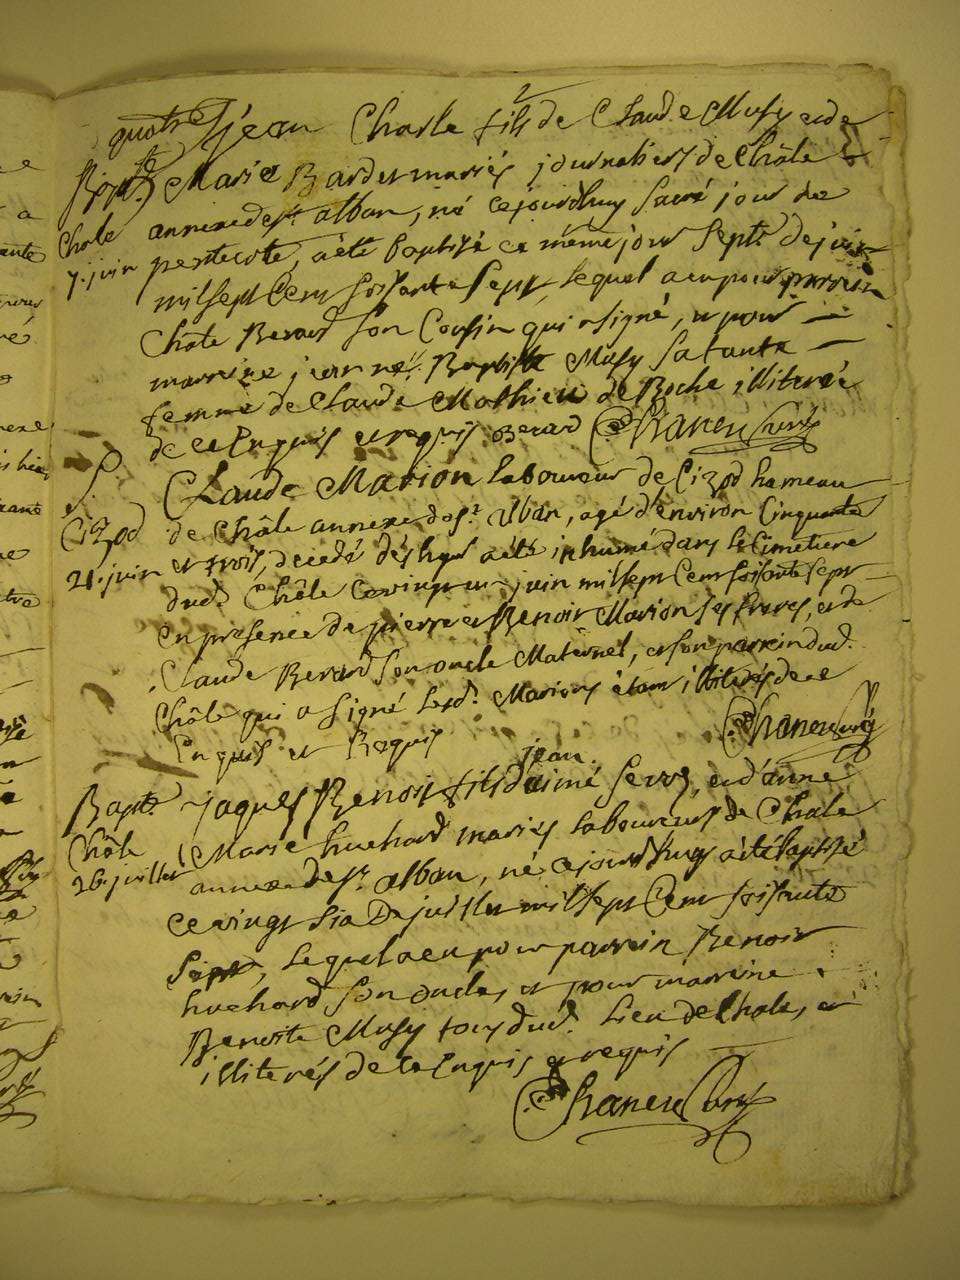 quatre
Bapt.
Chale
7. juin
jean Charle fils de Claude Musy et de
Marie Bardet mariés journaliers de Châle
annexe de st. alban, né cejourdhuy sacré jour de
pentecote, a été baptisé ce même jour sept.e de juin
mil sept cent soissante sept, lequel a eu pour parrein
Châle Berard son Cousin qui a signé, et pour
marreine jeanne Baptiste Musy sa tante
femme de Claude Mathieu de Roche illiterée
de ce Enquis et requis. Berard Chaneu Curé
S.
Cizod
21. juin
Claude Marion laboureur de Cizod hameau
de Châle annexe de st. alban, agé d'environ Cinquante
et trois, decedé dés hyer a été inhumé dans le Cimetiere
dud. Châle ce vingt un juin mil sept Cent soissante sept
en presence de pierre et Benoit Marion ses freres, et de
Claude Berard son oncle Maternel, et son parrein dud.
Châle qui a signé lesd. Marions étant illiterés de ce
Enquis et Requis Chaneu Curé
Bapt.
Châle
26. juillet
jean
jaques Benoit fils d'aimé Serve, et d'anne
Marie huchard mariés laboureurs de Chale
annexe de st. alban, né cejourdhuy a été baptisé
ce vingt six De juillet mil sept Cent soissante
Sept, lequel a eu pour parrein Benoit
huchard son oncle, et pour marreine
Benoite Musy tous dud. lieu de Chale, et
illiterés de ce Enquis et requis
Chaneu Curé